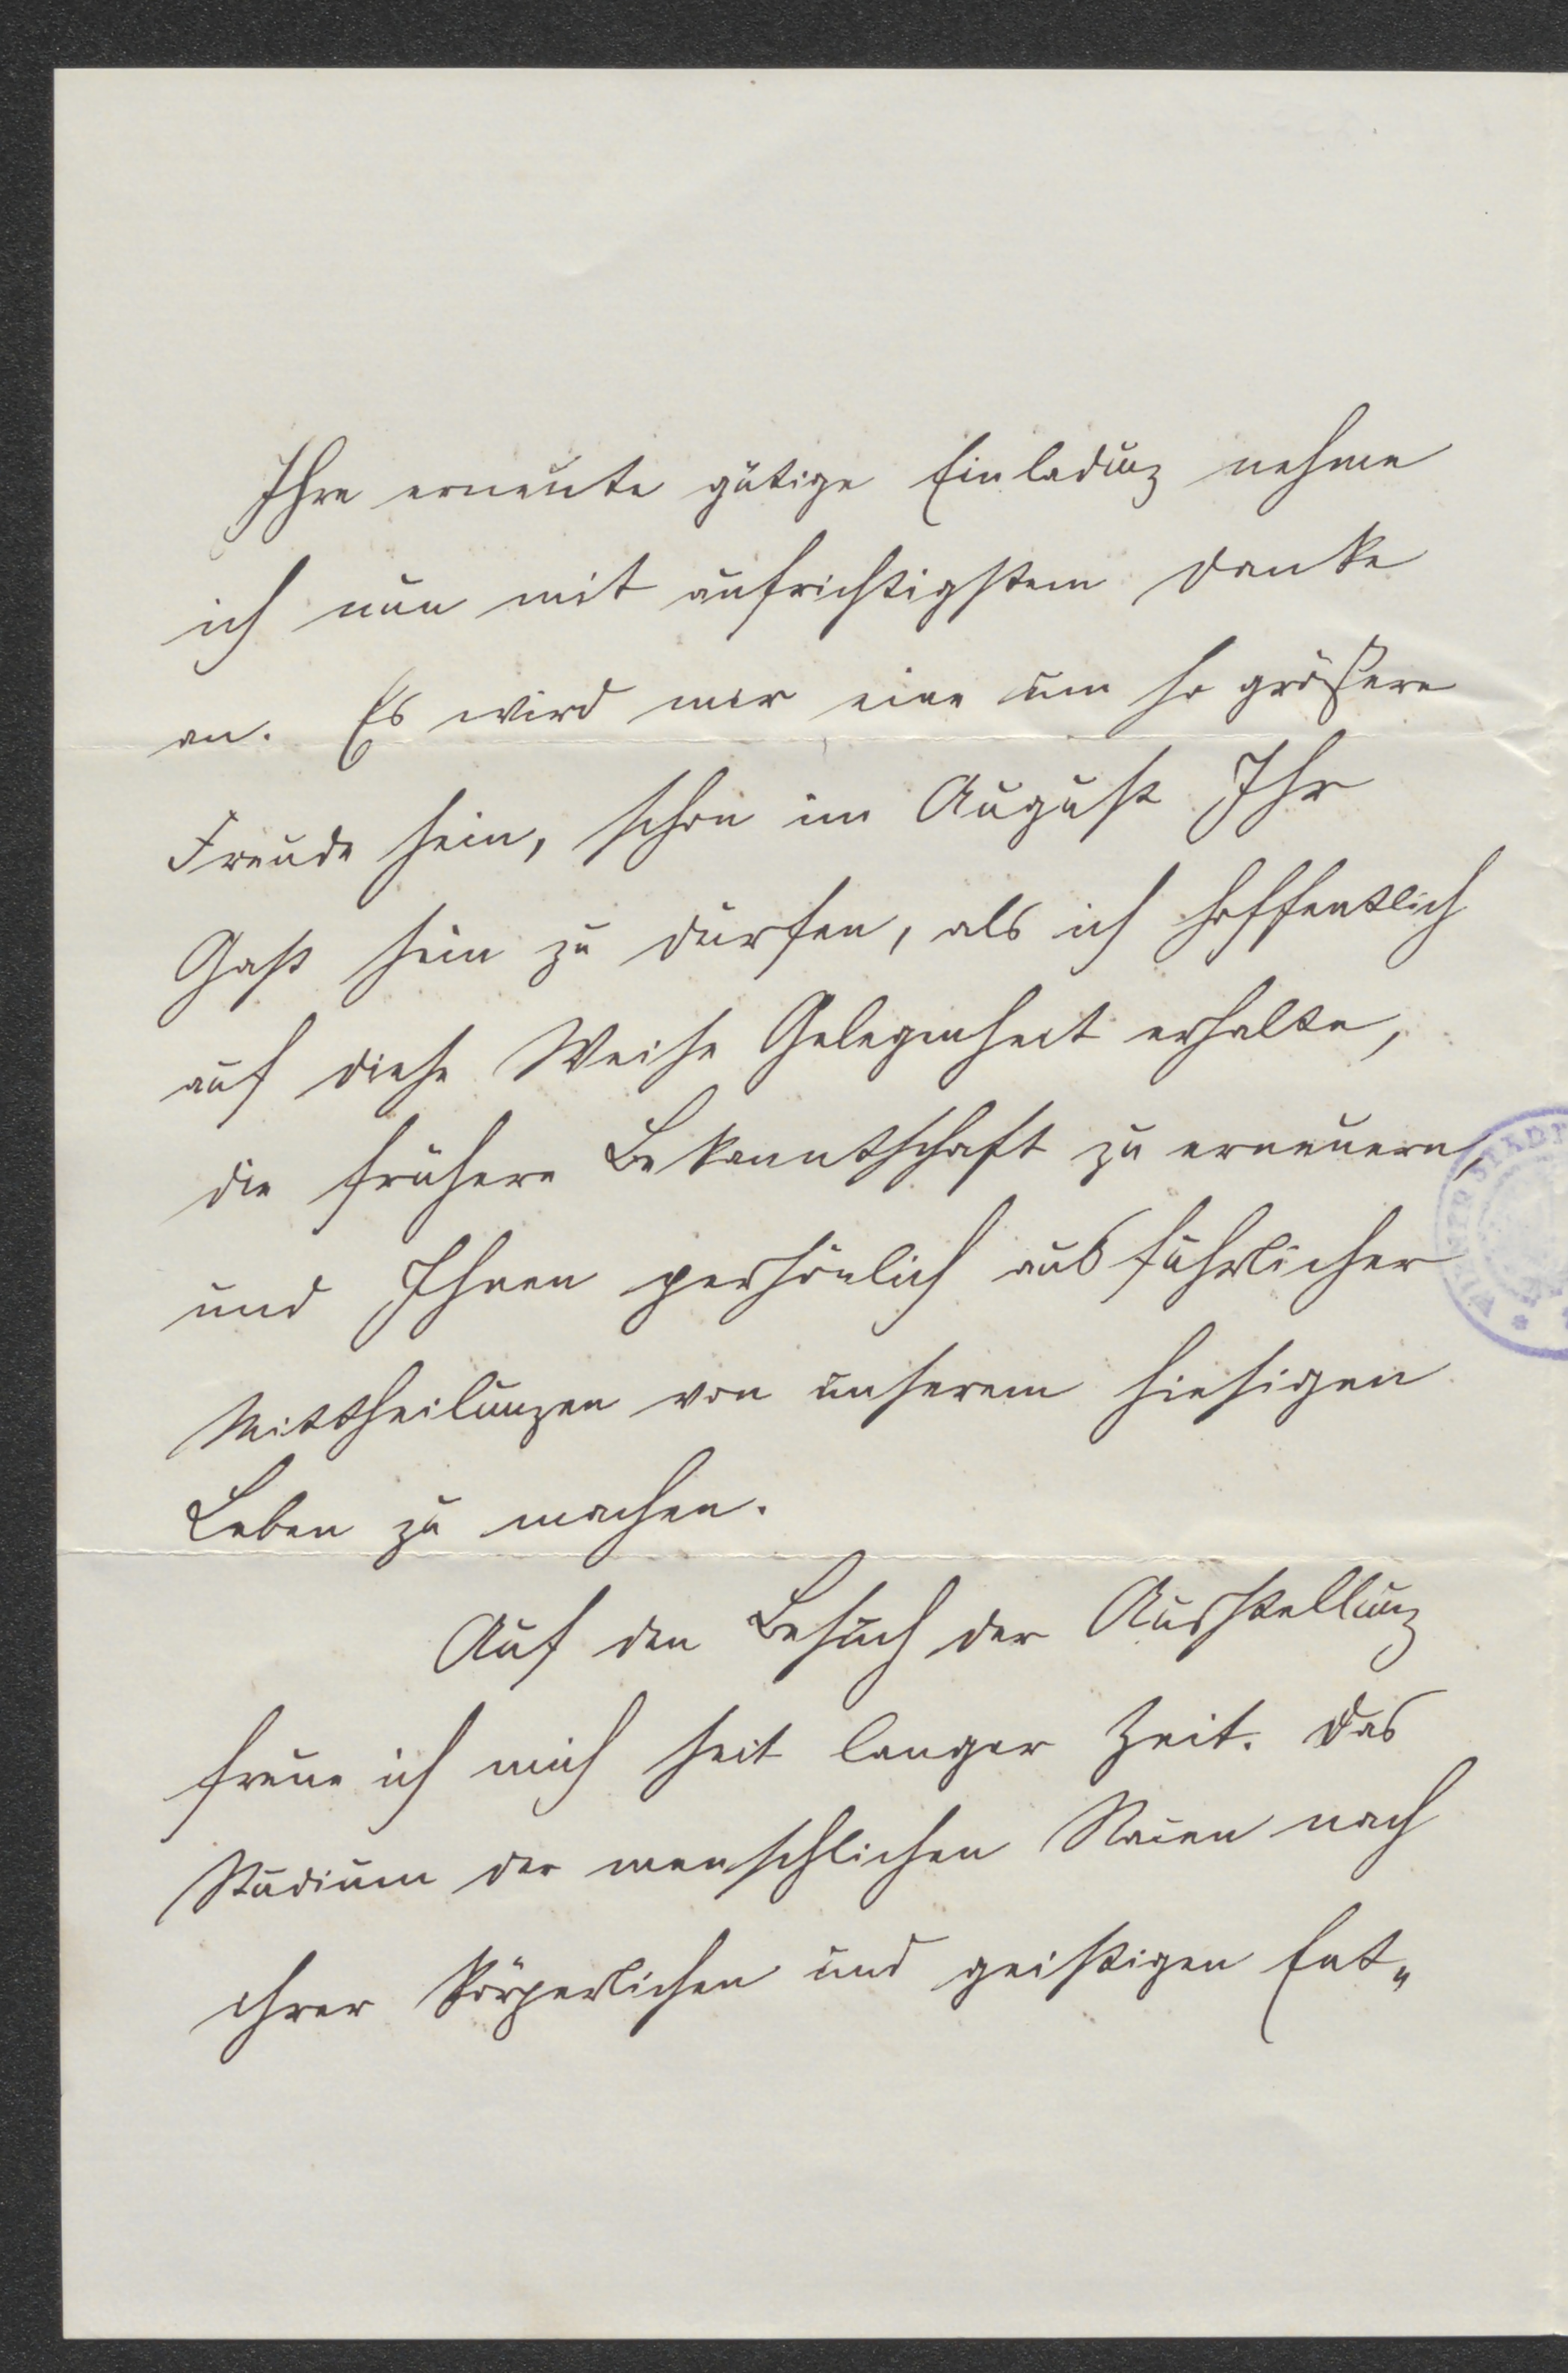 Ihre erneute gütige Einladung nehme
ich nun mit aufrichtigstem Danke
an. Es wird mir eine um so größere
Freude sein, schon im August Ihr
Gast sein zu dürfen, als ich hoffentlich
auf diese Weise Gelegenheit erhalte,
die frühere Bekanntschaft zu erneuern,
und Ihnen persönlich ausführlicher
Mittheilungen von unserem hiesigen
Leben zu machen.
Auf den Besuch der Ausstellung
freue ich mich seit langer Zeit. Das
Studium der menschlichen Racen nach
ihrer körperlichen und geistigen Ent„